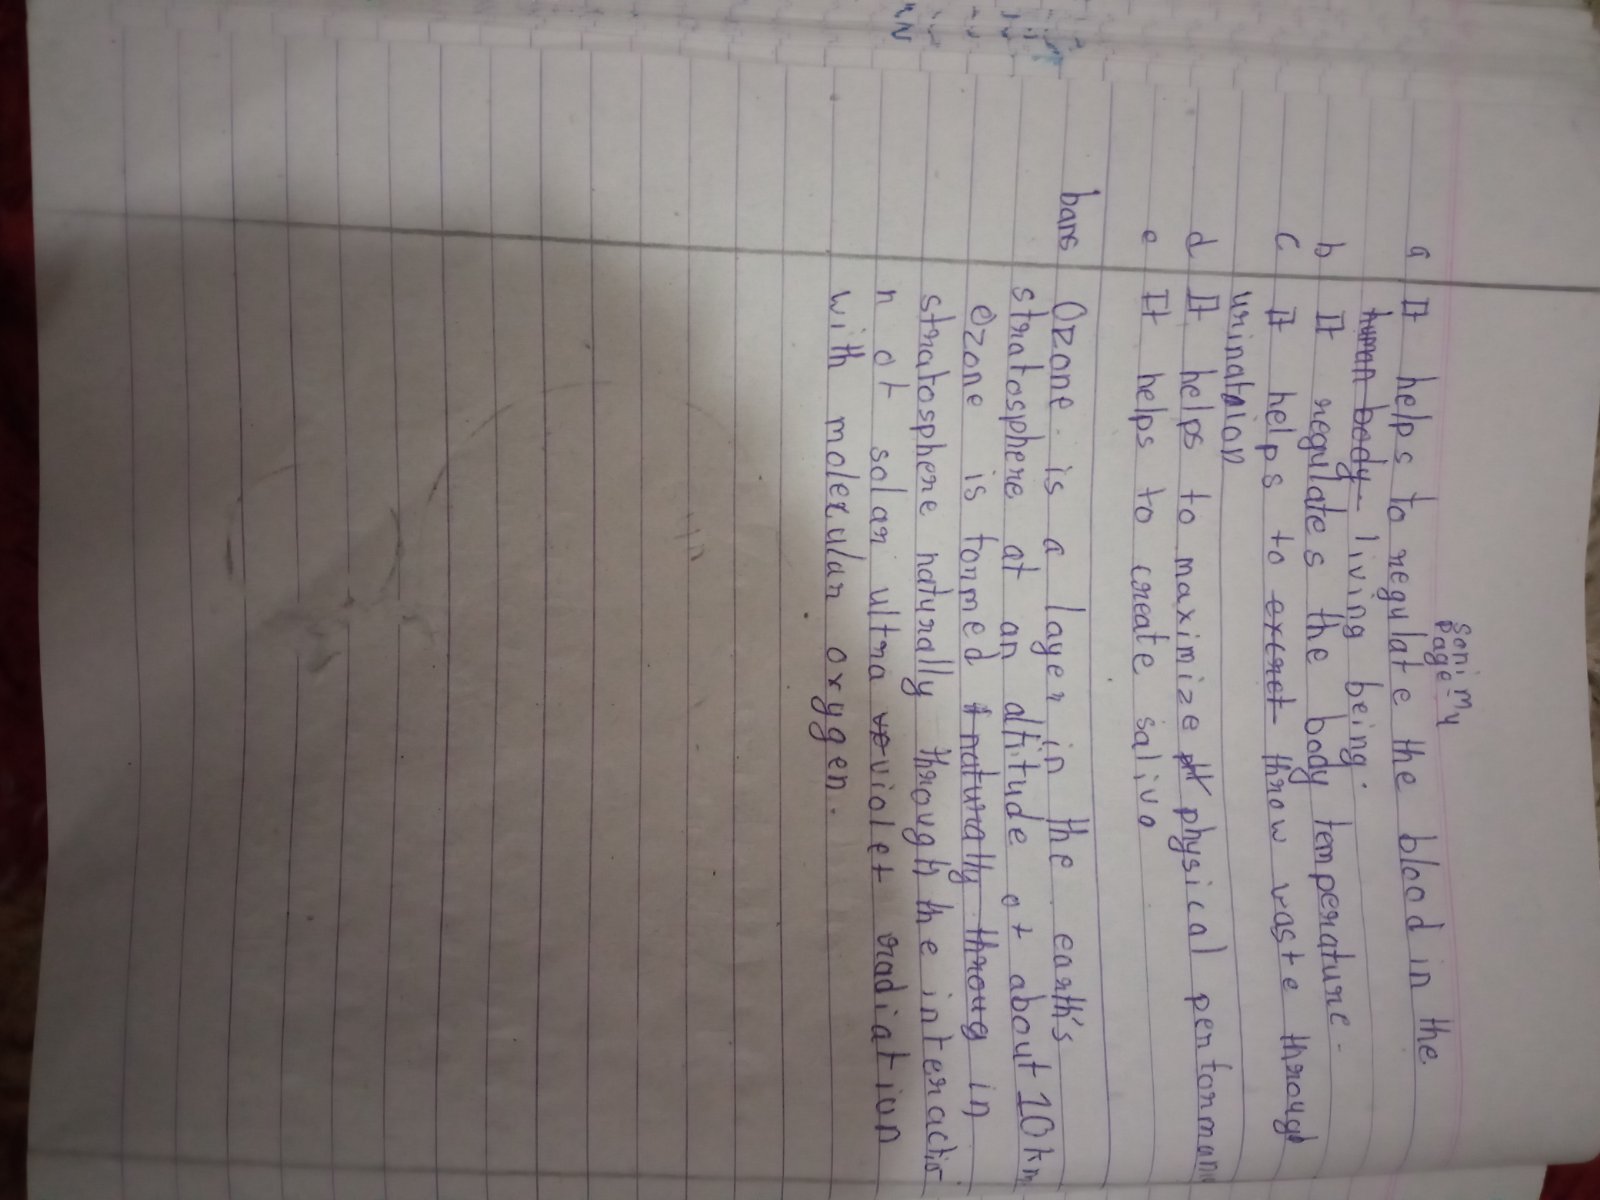 soni my
page
a It helps to regulate the blood in the
human body living being.
b It regulates the body temperature.
c It helps to excret throw vaste through
urination
d It helps to maximize ph physical performan
e It helps to create saliva
bans Ozone is a layer in the earth's
stratosphere at an altitude of about 10 km
Ozone is formed naturally throug in
stratosphere naturally through the interactio
n of solar ultra ve violet radiation
with molecular oxygen.